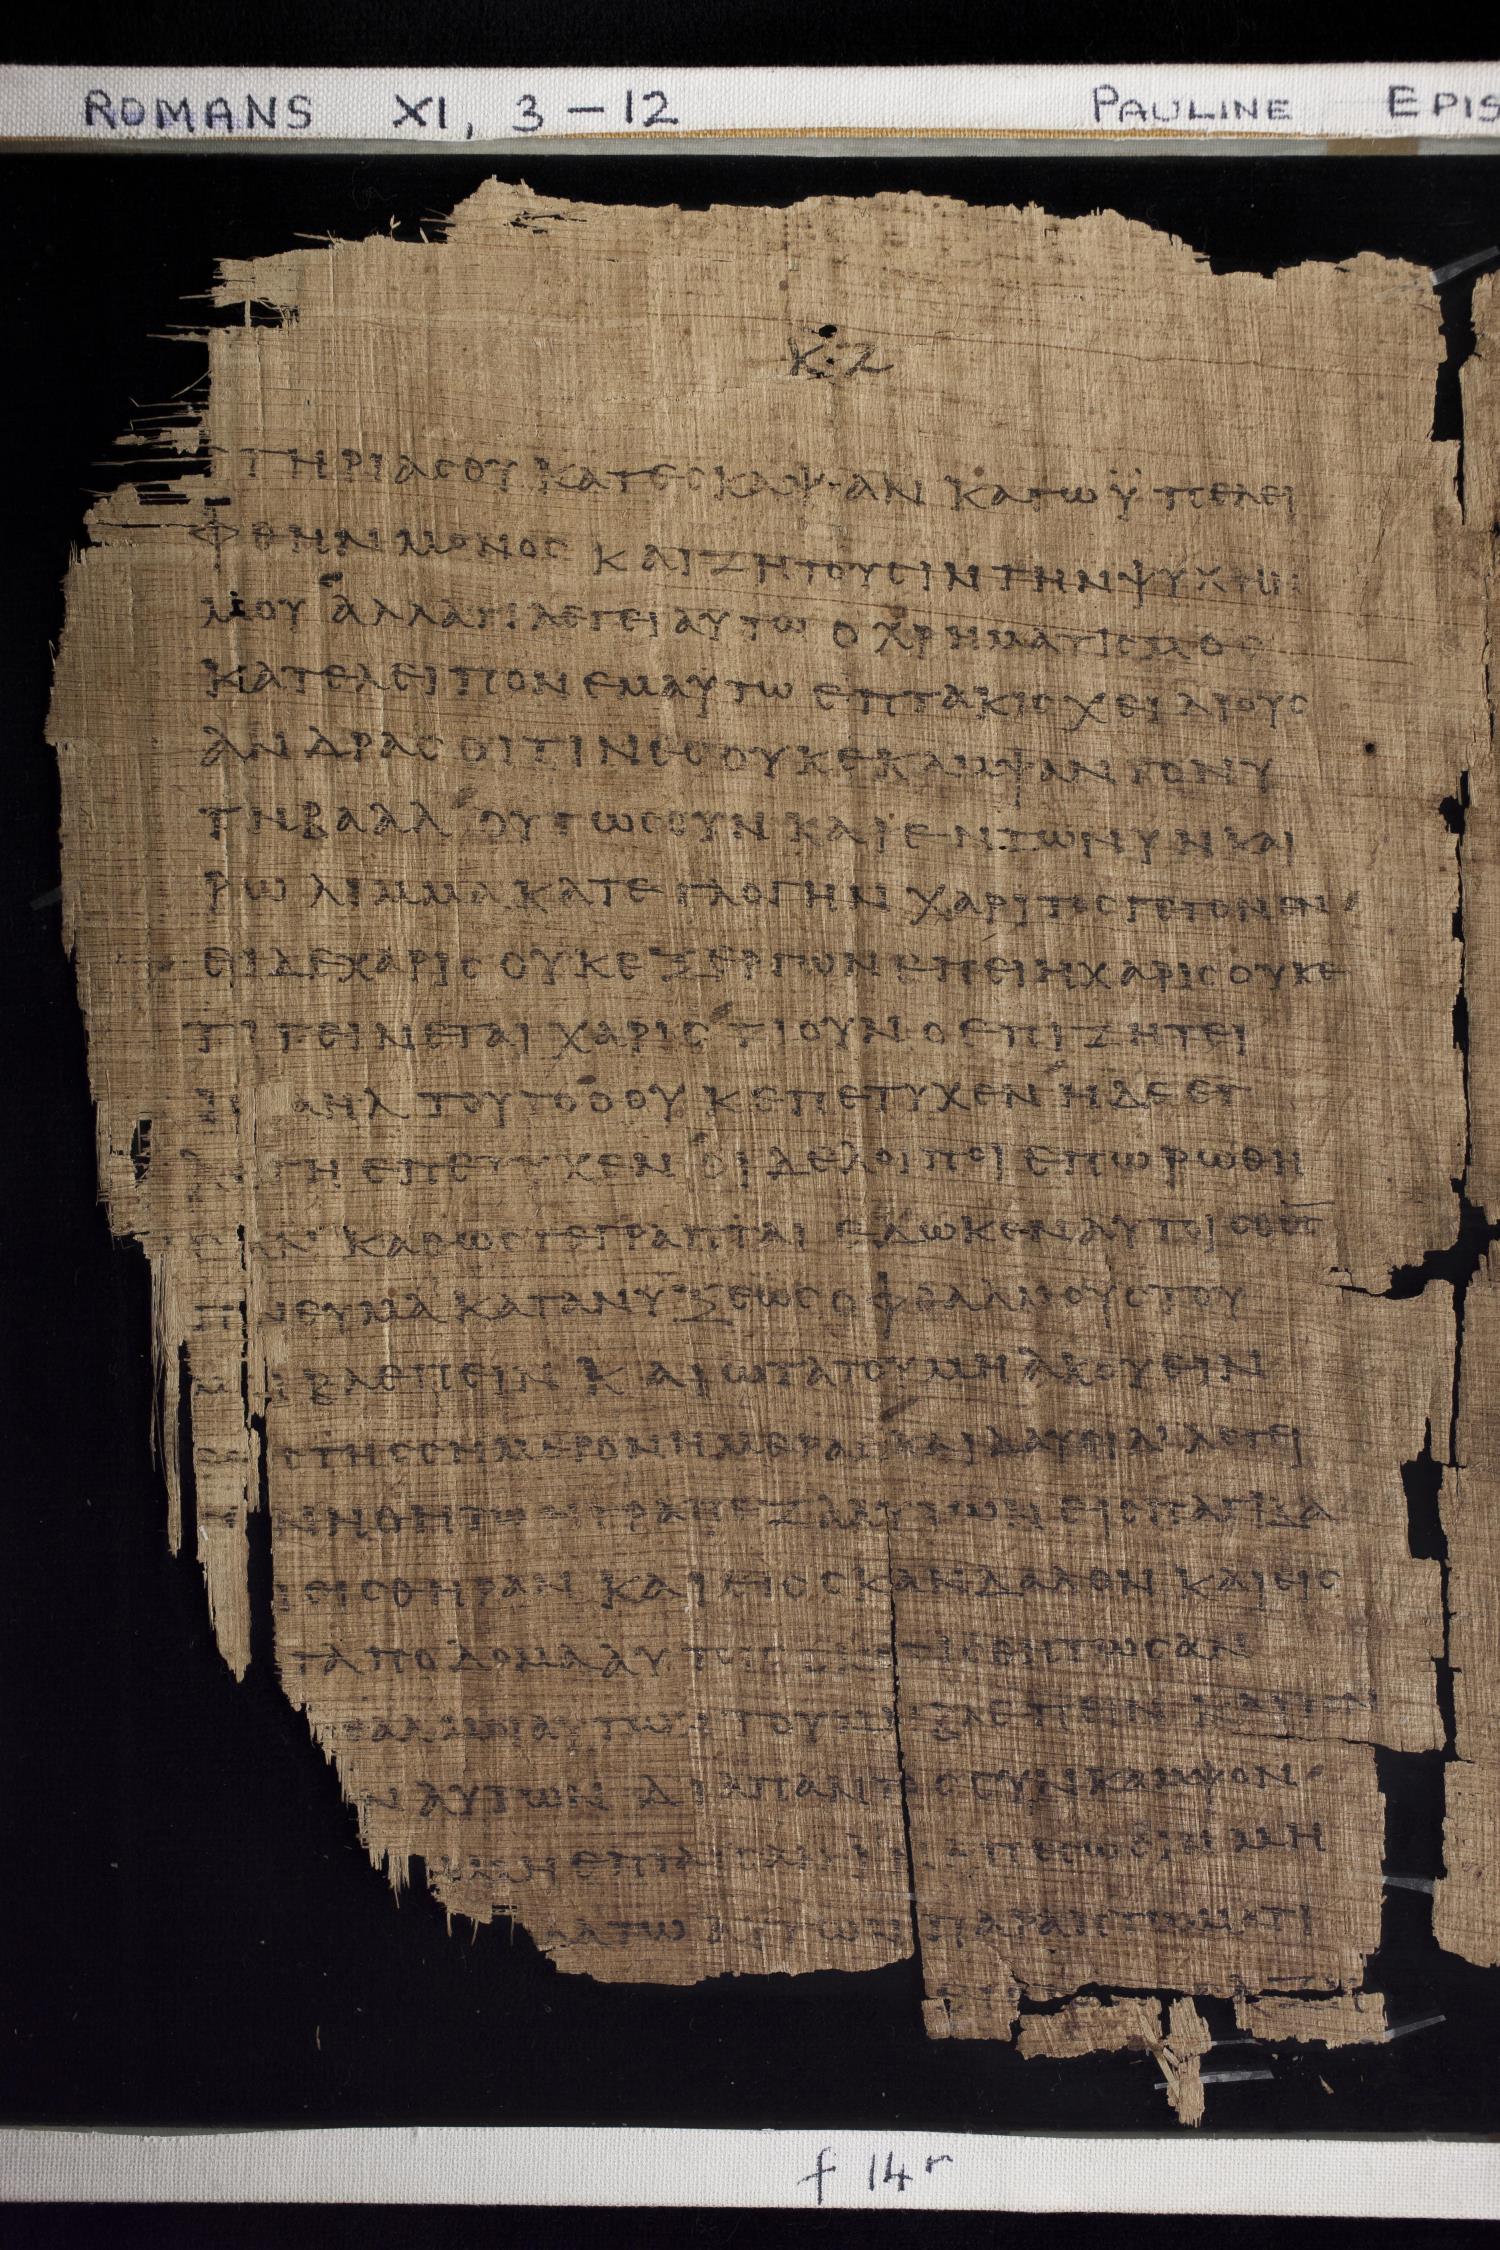 ROMANS XI, 3 – 12 PAULINE EPIS
ΚΖ
ΣΤΗΡΙΑ ϹΟΥ ΚΑΤΕϹΚΑΨΑΝ ΚΑΓΩ ΫΠΕΛΕΙ
ΦΘΗΝ ΜΟΝΟϹ ΚΑΙ ΖΗΤΟΥϹΙΝ ΤΗΝ ΨΥΧΗΝ
ΜΟΥ ΑΛΛΑ ΤΙ ΛΕΓΕΙ ΑΥΤΩ Ο ΧΡΗΜΑΤΙϹΜΟϹ
ΚΑΤΕΛΕΙΠΟΝ ΕΜΑΥΤΩ ΕΠΤΑΚΙϹΧΕΙΛΙΟΥϹ
ΑΝΔΡΑϹ ΟΙΤΙΝΕϹ ΟΥΚ ΕΚΑΜΨΑΝ ΓΟΝΥ
ΤΗ ΒΑΑΛ ΟΥΤΩϹ ΟΥΝ ΚΑΙ ΕΝ ΤΩ ΝΥΝ ΚΑΙ
ΡΩ ΛΙΜΜΑ ΚΑΤ ΕΓΛΟΓΗΝ ΧΑΡΙΤΟϹ ΓΕΓΟΝΕΝ
ΕΙ ΔΕ ΧΑΡΙϹ ΟΥΚ ΕΞ ΕΡΓΩΝ ΕΠΕΙ Η ΧΑΡΙϹ ΟΥΚΕ
ΤΙ ΓΕΙΝΕΤΑΙ ΧΑΡΙϹ ΤΙ ΟΥΝ Ο ΕΠΙΖΗΤΕΙ
ΑΗΛ ΤΟΥΤΟ ΟΥΚ ΕΠΕΤΥΧΕΝ Η ΔΕ ΕΓ
ΓΗ ΕΠΕΤΥΧΕΝ ΟΙ ΔΕ ΛΟΙΠΟΙ ΕΠΩΡΩΘΗ
ϹΑΝ ΚΑΘΩϹ ΓΕΓΡΑΠΤΑΙ ΕΔΩΚΕΝ ΑΥΤΟΙϹ
ΠΝΕΥΜΑ ΚΑΤΑΝΥΞΕΩϹ ΟΦΘΑΛΜΟΥϹ ΤΟΥ
ΒΛΕΠΕΙΝ ΚΑΙ ΩΤΑ ΤΟΥ ΜΗ ΑΚΟΥΕΙΝ
ΤΗϹ ϹΗΜΕΡΟΝ ΗΜΕΡΑϹ ΚΑΙ ΔΑΥΕΙΔ ΛΕΓΕΙ
ΝΗΘΗΤΩ Η ΤΡΑΠΕΖΑ ΑΥΤΩΝ ΕΙϹ ΠΑΓΙΔΑ
ΕΙϹ ΘΗΡΑΝ ΚΑΙ ΕΙϹ ϹΚΑΝΔΑΛΟΝ ΚΑΙ ΕΙϹ
ΤΑΠΟΔΟΜΑ ΑΥΤΟΙϹ ϹΚΟΤΙϹΘΗΤΩϹΑΝ
ΘΑΛΜΟΙ ΑΥΤΩΝ ΤΟΥ ΜΗ ΒΛΕΠΕΙΝ ΚΑΙ ΤΟΝ
Ν ΑΥΤΩΝ ΔΙΑ ΠΑΝΤΟϹ ϹΥΝΚΑΜΨΟΝ
ΜΗ ΕΠΤΑΙϹΑΝ ΠΕϹΩϹΙΝ ΜΗ
ΑΥΤΩΝ ΠΑΡΑΠΤΩΜΑΤΙ
f 14r